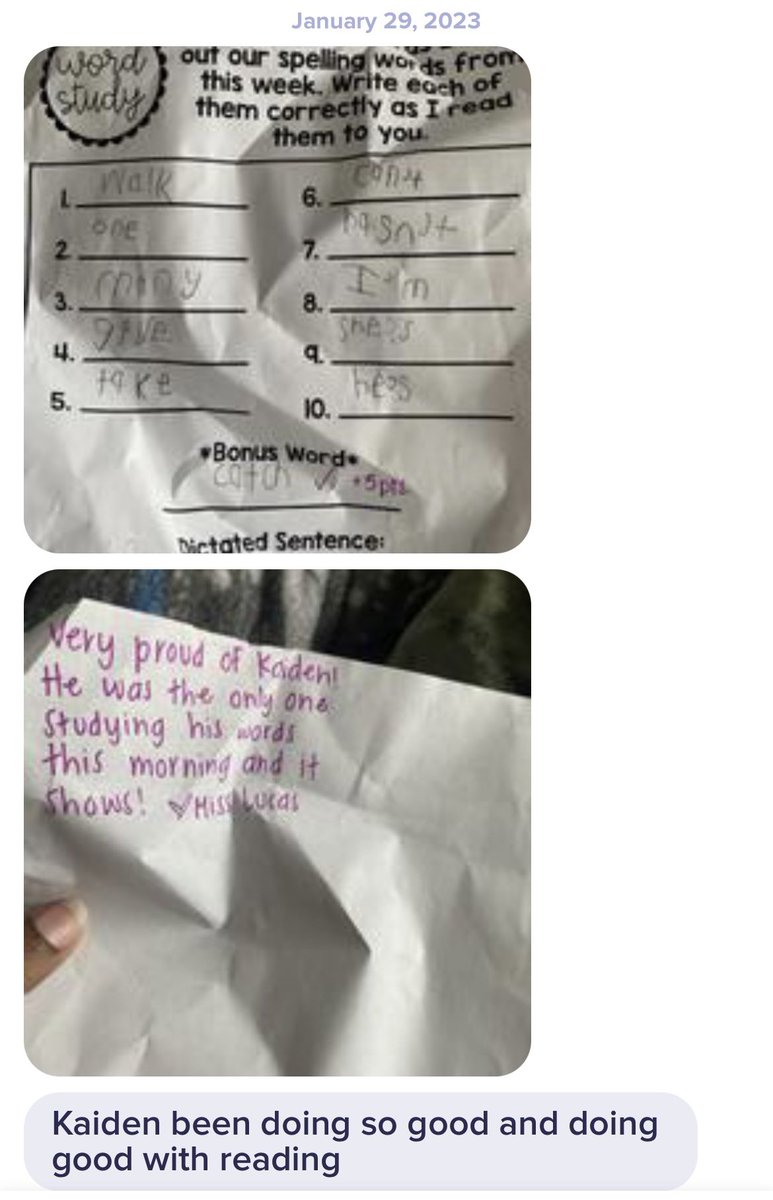 January 29, 2023
word
study
out our spelling words from
this week. Write each of
them correctly as I read
them to you.
1. Walk
2. one
3. many
4. give
5. take
6. can't
7. hasn't
8. I'm
9. she's
10. he's
*Bonus Word*
catch ✓ +5pts
Dictated Sentence:
Very proud of Kaden!
He was the only one
studying his words
this morning and it
shows! ♡Miss Lucas
Kaiden been doing so good and doing
good with reading